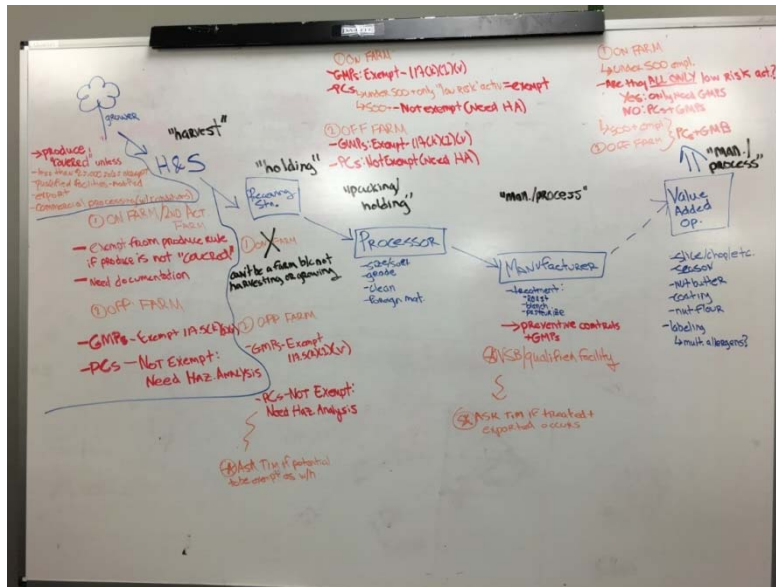 grower
→ produce "covered" unless
- export
"harvest"
H&S
① ON FARM / 2ND ACT. FARM
- exempt from produce rule
if produce is not "covered"
- Need documentation
② OFF FARM
- GMPs - Exempt
- PCs - NOT EXEMPT:
Need Haz. Analysis
"holding"
Receiving
Sta.
① ON FARM
can't be a farm b/c not
harvesting or growing
② OFF FARM
- GMPs - Exempt
- PCs - NOT EXEMPT:
Need Haz. Analysis
ASK TIM if potential
to be exempt as w/h
① ON FARM
- GMPs: Exempt -
- PCs: under 500 + only "low risk" activ = exempt
↳ 500+ - Not exempt (Need HA)
② OFF FARM
- GMPs: Exempt -
- PCs: Not Exempt (Need HA)
"packing/
holding"
PROCESSOR
- size/sort
- grade
- clean
- foreign mat.
"man./process"
MANUFACTURER
- treatment:
- roast
- blanch
- pasteurize
→ preventive controls
+ GMPs
VSB/qualified facility
ASK TIM if treated +
exported occurs
① ON FARM
↳ under 500 empl.
- Are they ALL ONLY low risk act.?
YES: only need GMPs
NO: PCs + GMPs
↳ 500 + empl.
② OFF FARM
PCs + GMPs
"man./
process"
Value
Added
Op.
- slice/chop/etc.
- season
- nut butter
- coating
- nut flour
- labeling
↳ mult. allergens?